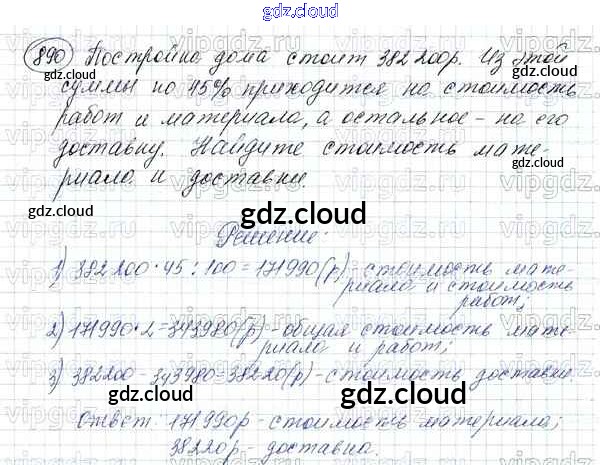 gdz.cloud
890 Постройка дома стоит 382 200р. Из этой
суммы по 45% приходится на стоимость
работ и материала, а остальное - на его
доставку. Найдите стоимость мате-
риала и доставки.
gdz.cloud
Решение:
1) 382 200 · 45 : 100 = 171 990 (р) - стоимость мате-
риала и стоимость
работ;
2) 171990 · 2 = 343980 (р) - общая стоимость мате-
риала и работ;
3) 382200 - 343980 = 38220 (р) - стоимость доставки.
Ответ: 171990р - стоимость материала;
38220р - доставка.
gdz.cloud